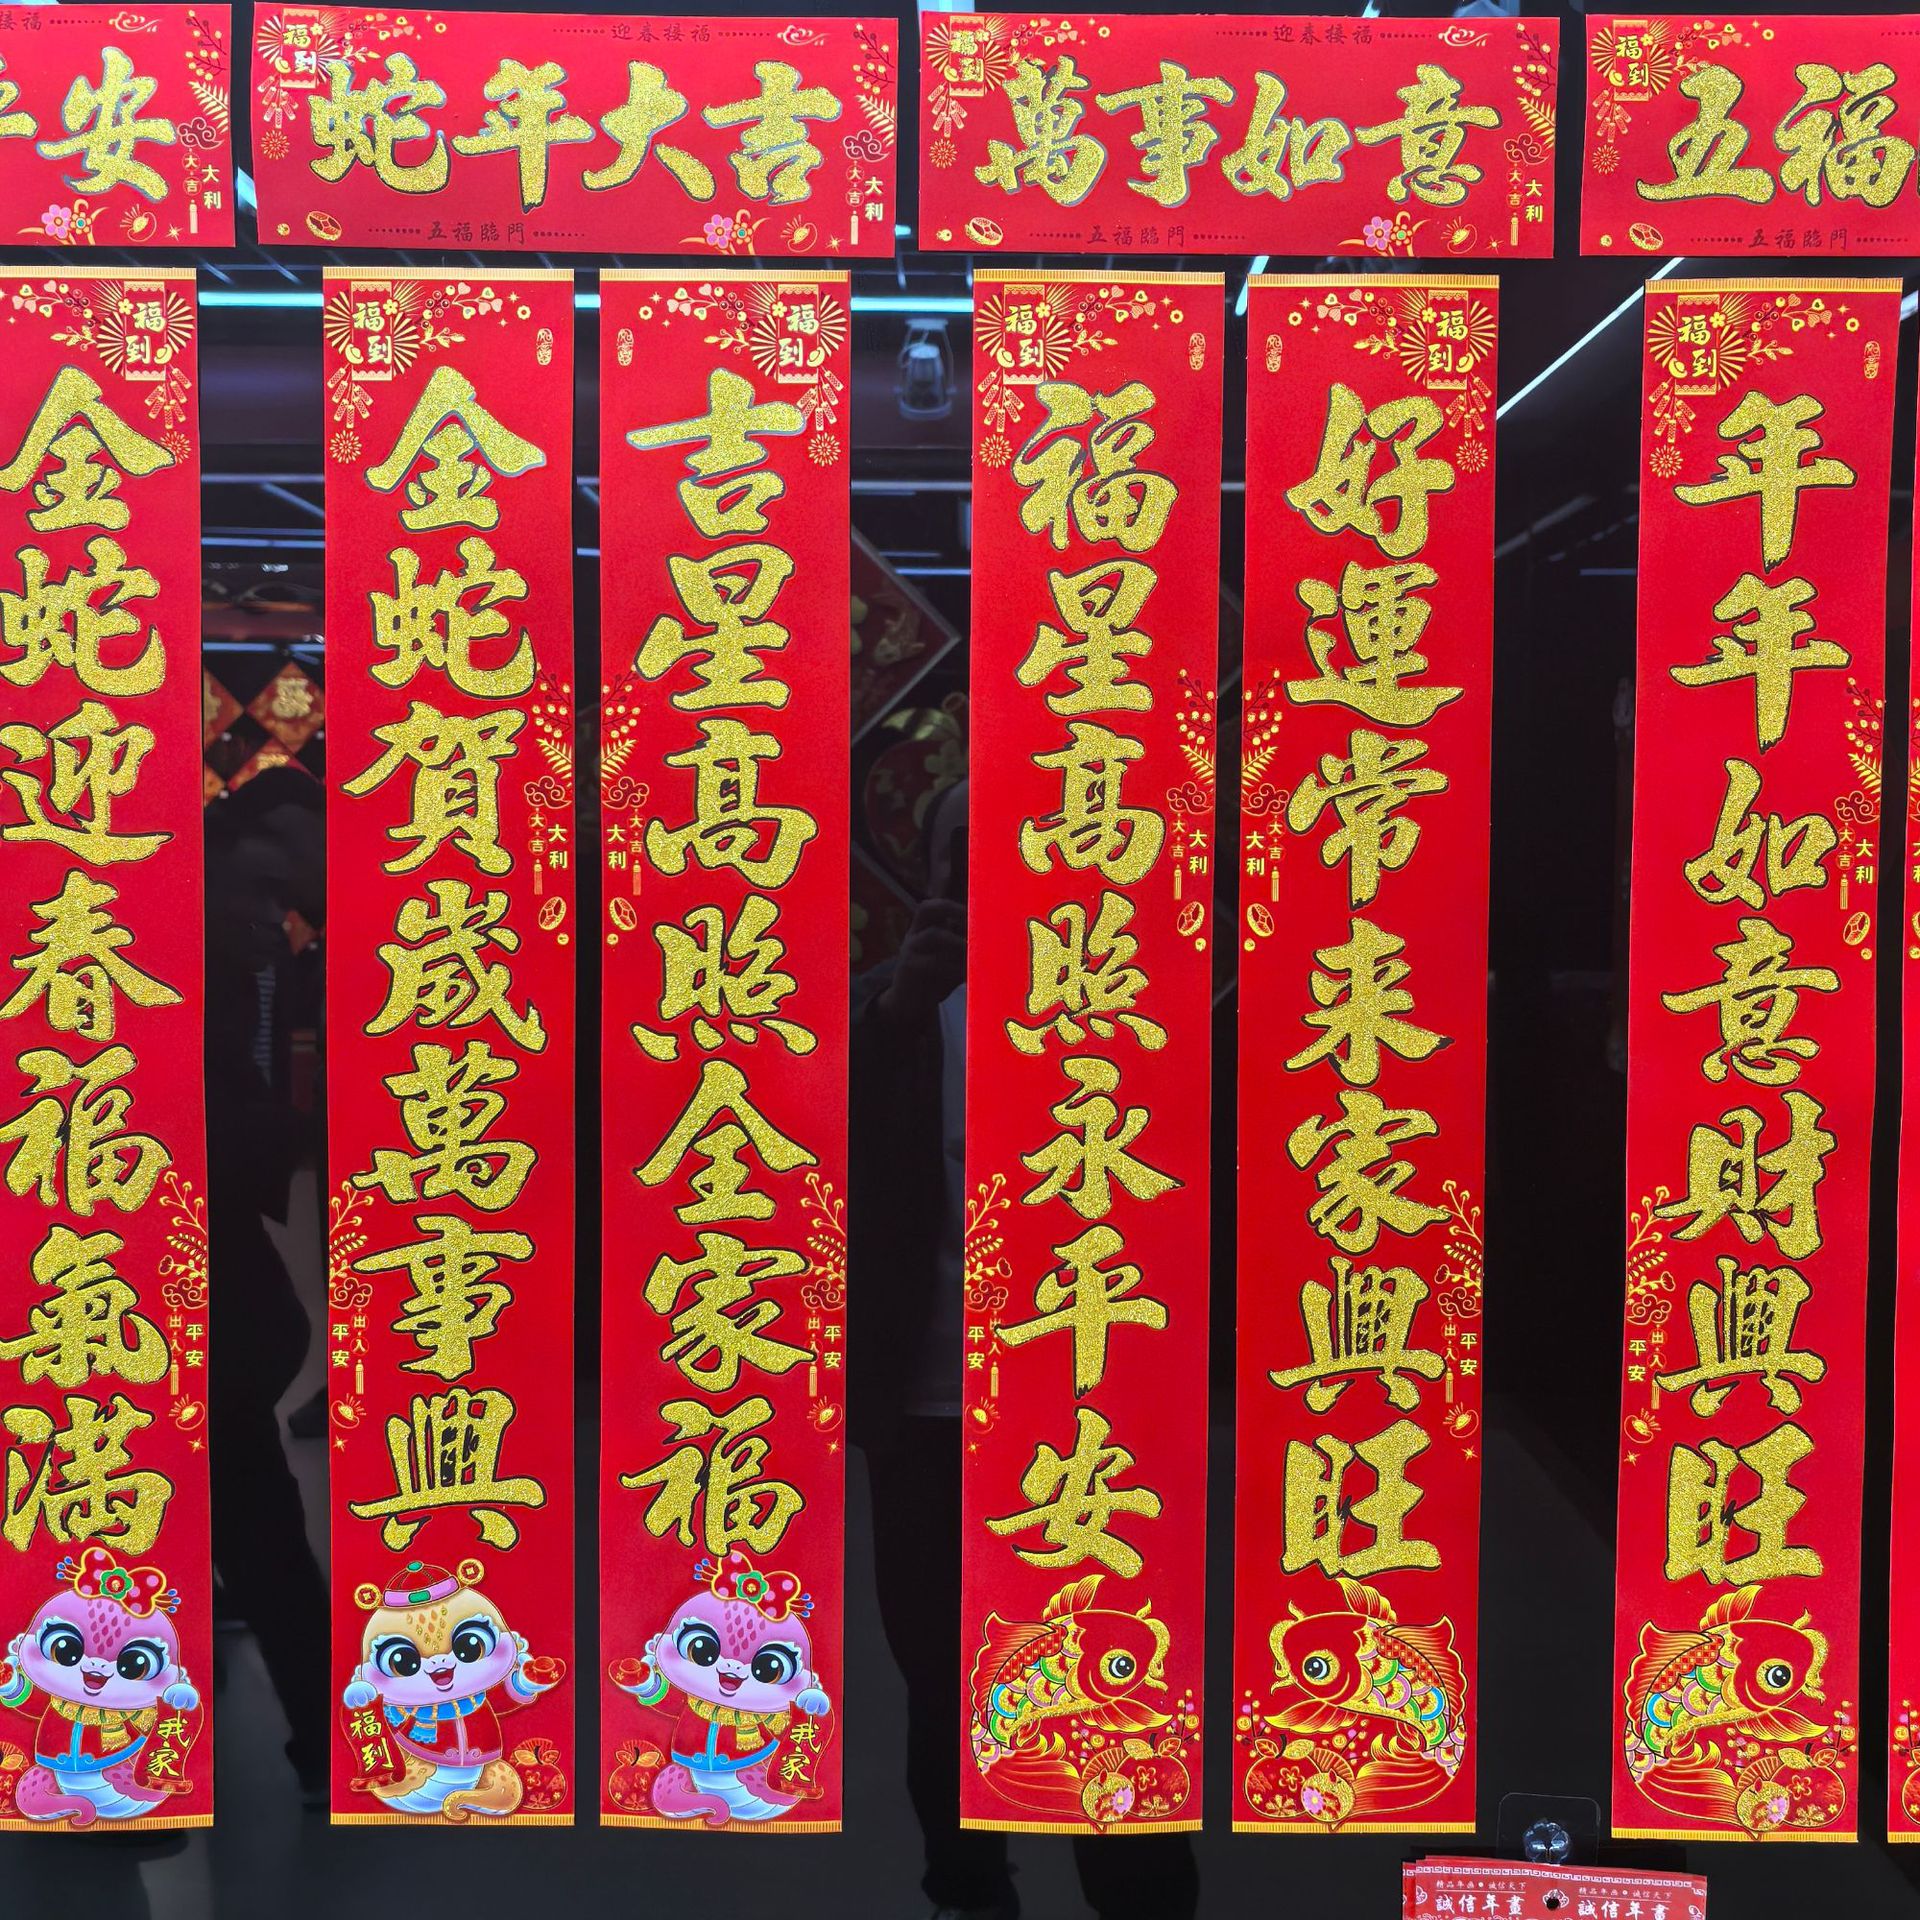 安
蛇年大吉
萬事如意
五福
迎春接福
迎春接福
五福臨門
五福臨門
五福臨門
福到
福到
福到
大吉
大利
大吉
大利
大吉
大利
金蛇迎春福氣滿
金蛇賀歲萬事興
吉星高照全家福
福星高照永平安
好運常来家興旺
年年如意財興旺
福到
福到
福到
福到
福到
福到
大吉
大利
大吉
大利
大吉
大利
大吉
大利
大吉
大利
出入
平安
出入
平安
出入
平安
出入
平安
出入
平安
出入
平安
我家
福到
我家
精品年画●诚信天下
誠信年畫
精品年画●诚信天下
誠信年畫